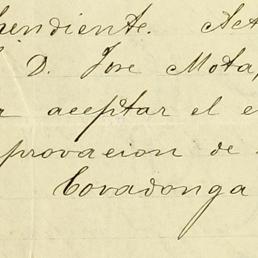 hendiente. Act
D. Jose Mota,
aceptar el e
provacion de
Covadonga